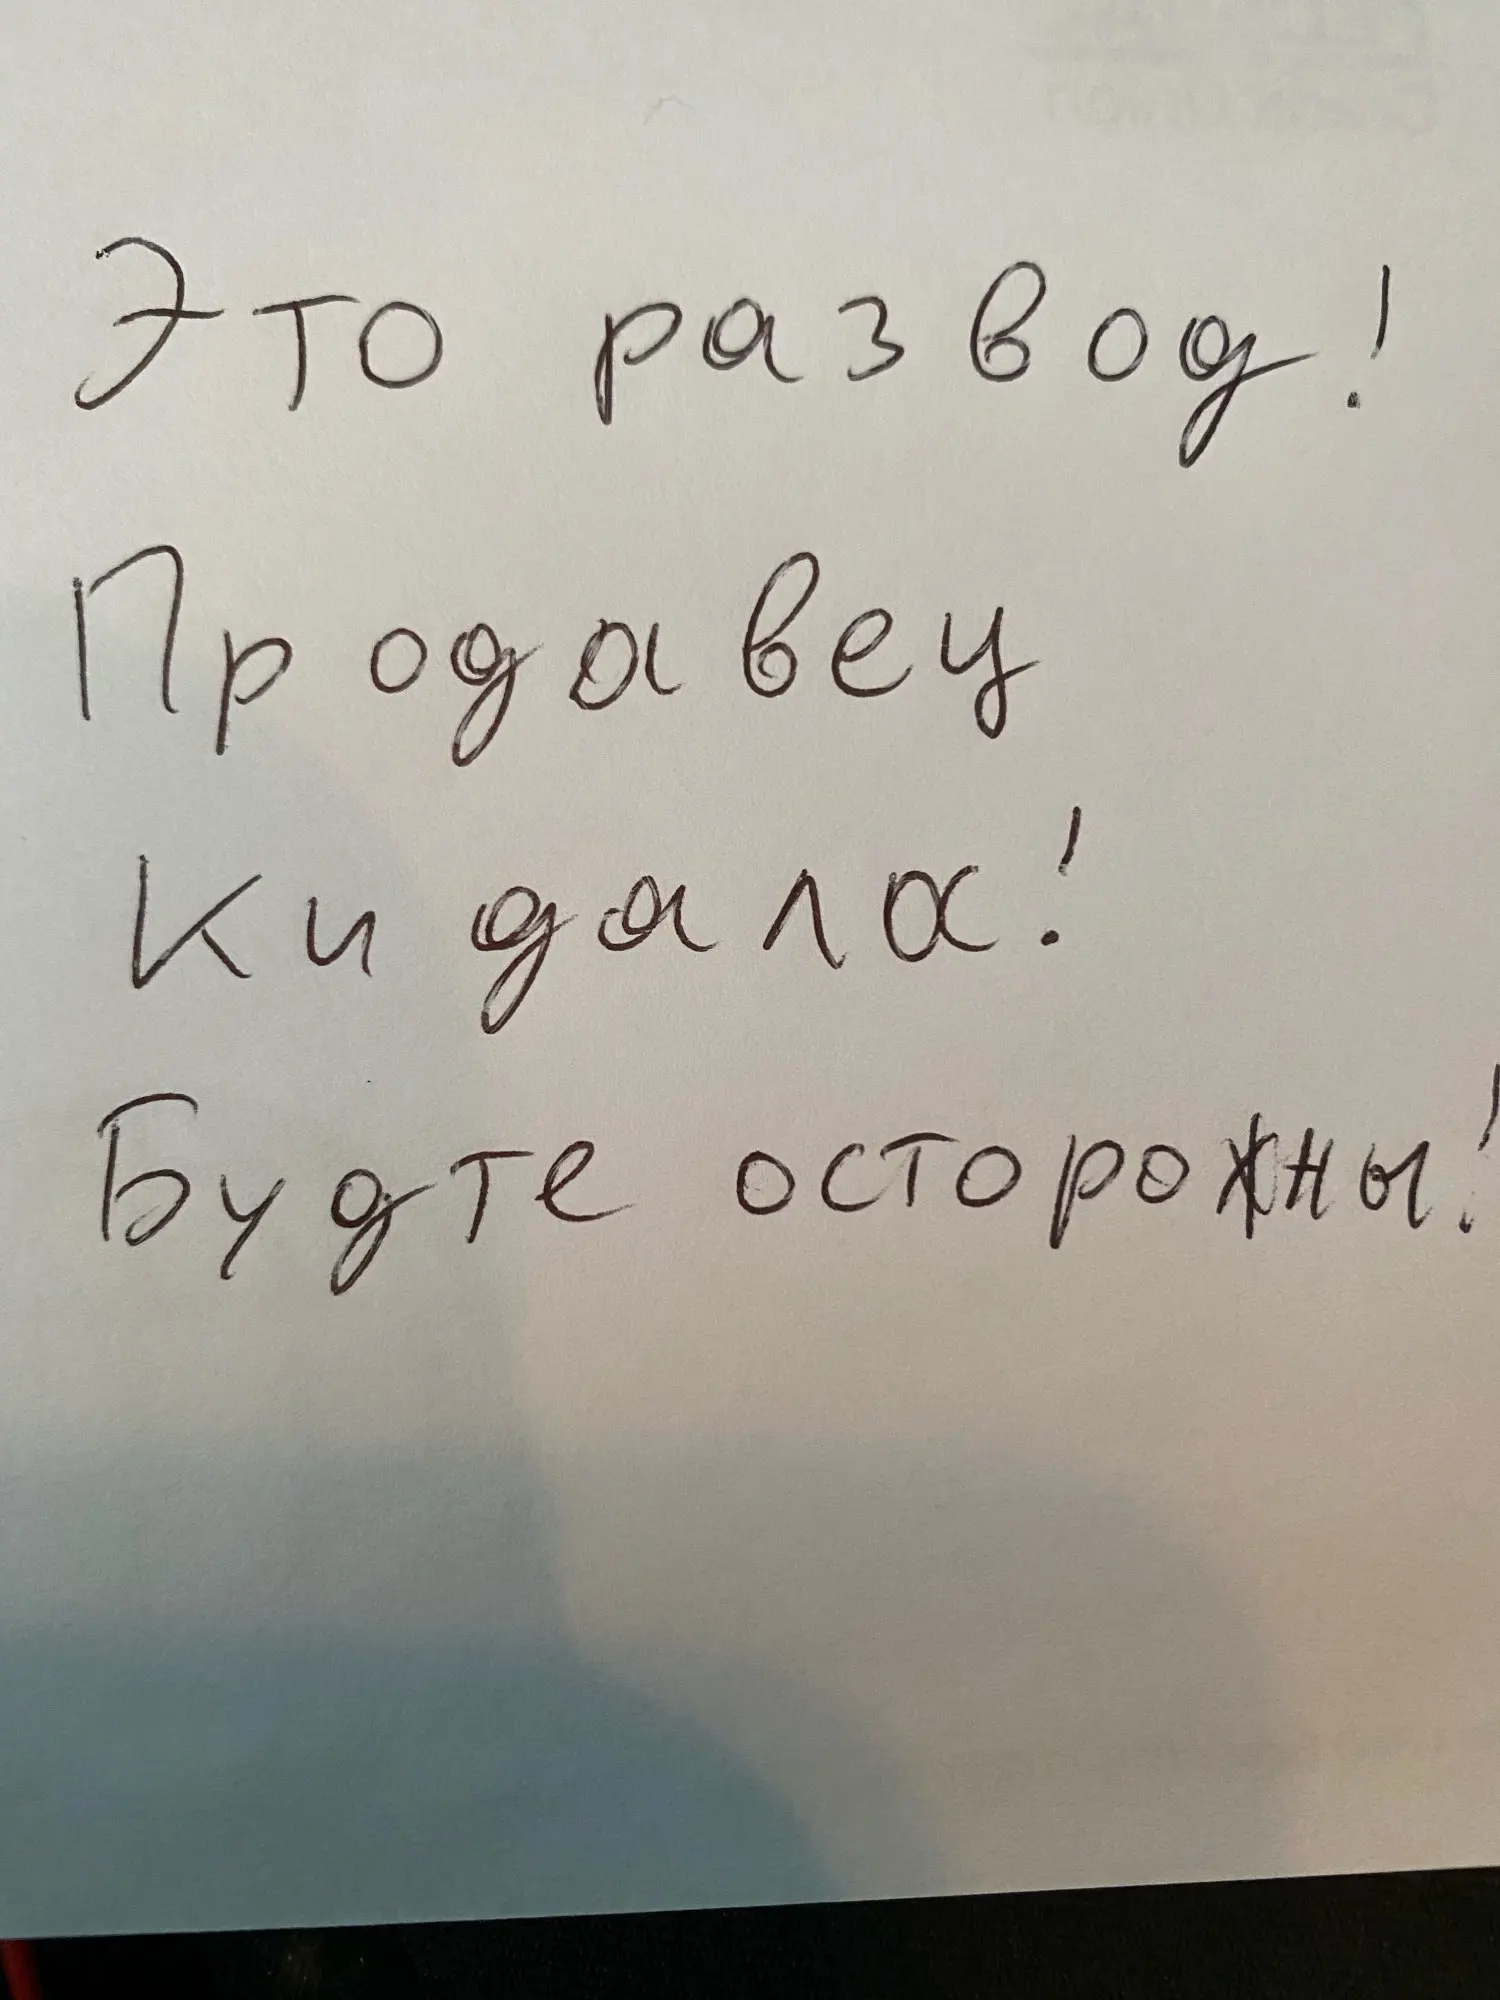 Это развод!
Продавец
кидала!
Будте осторожны!